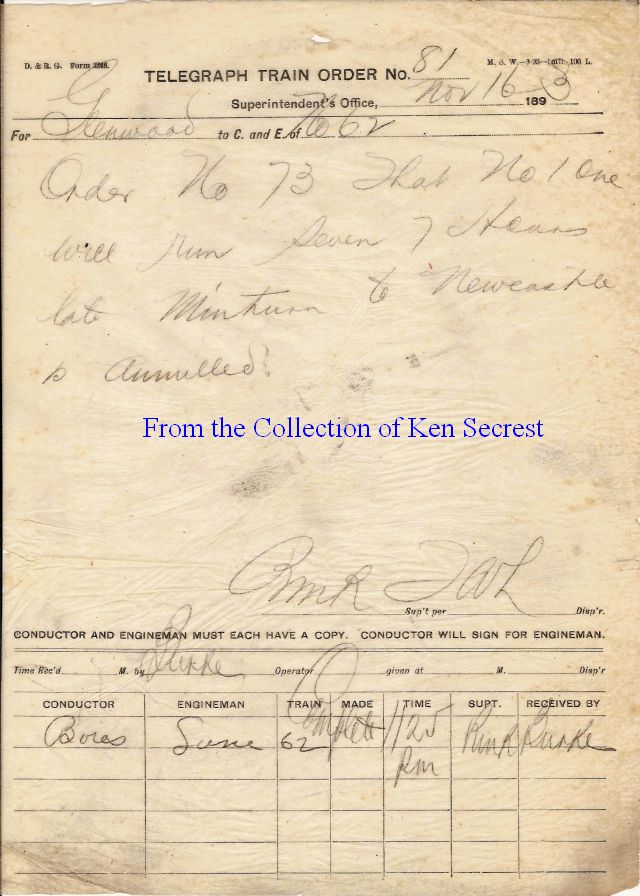 D. & R. G. Form 3268. M. S. W.—9-93—1mll 100 L.
TELEGRAPH TRAIN ORDER No. 81
Superintendent's Office, Nov 16 1893
For Glenwood to C. and E. of No 62
Order No 73 That No 1 One
will run Seven 7 Hours
late Minturn to Newcastle
is Annulled
From the Collection of Ken Secrest
RMR
Sup't per Disp'r.
CONDUCTOR AND ENGINEMAN MUST EACH HAVE A COPY. CONDUCTOR WILL SIGN FOR ENGINEMAN.
Time Rec'd M. by Burke Operator given at M. Disp'r
CONDUCTOR ENGINEMAN TRAIN MADE TIME SUPT. RECEIVED BY
62 Complett 1125 Pm RMR Burke